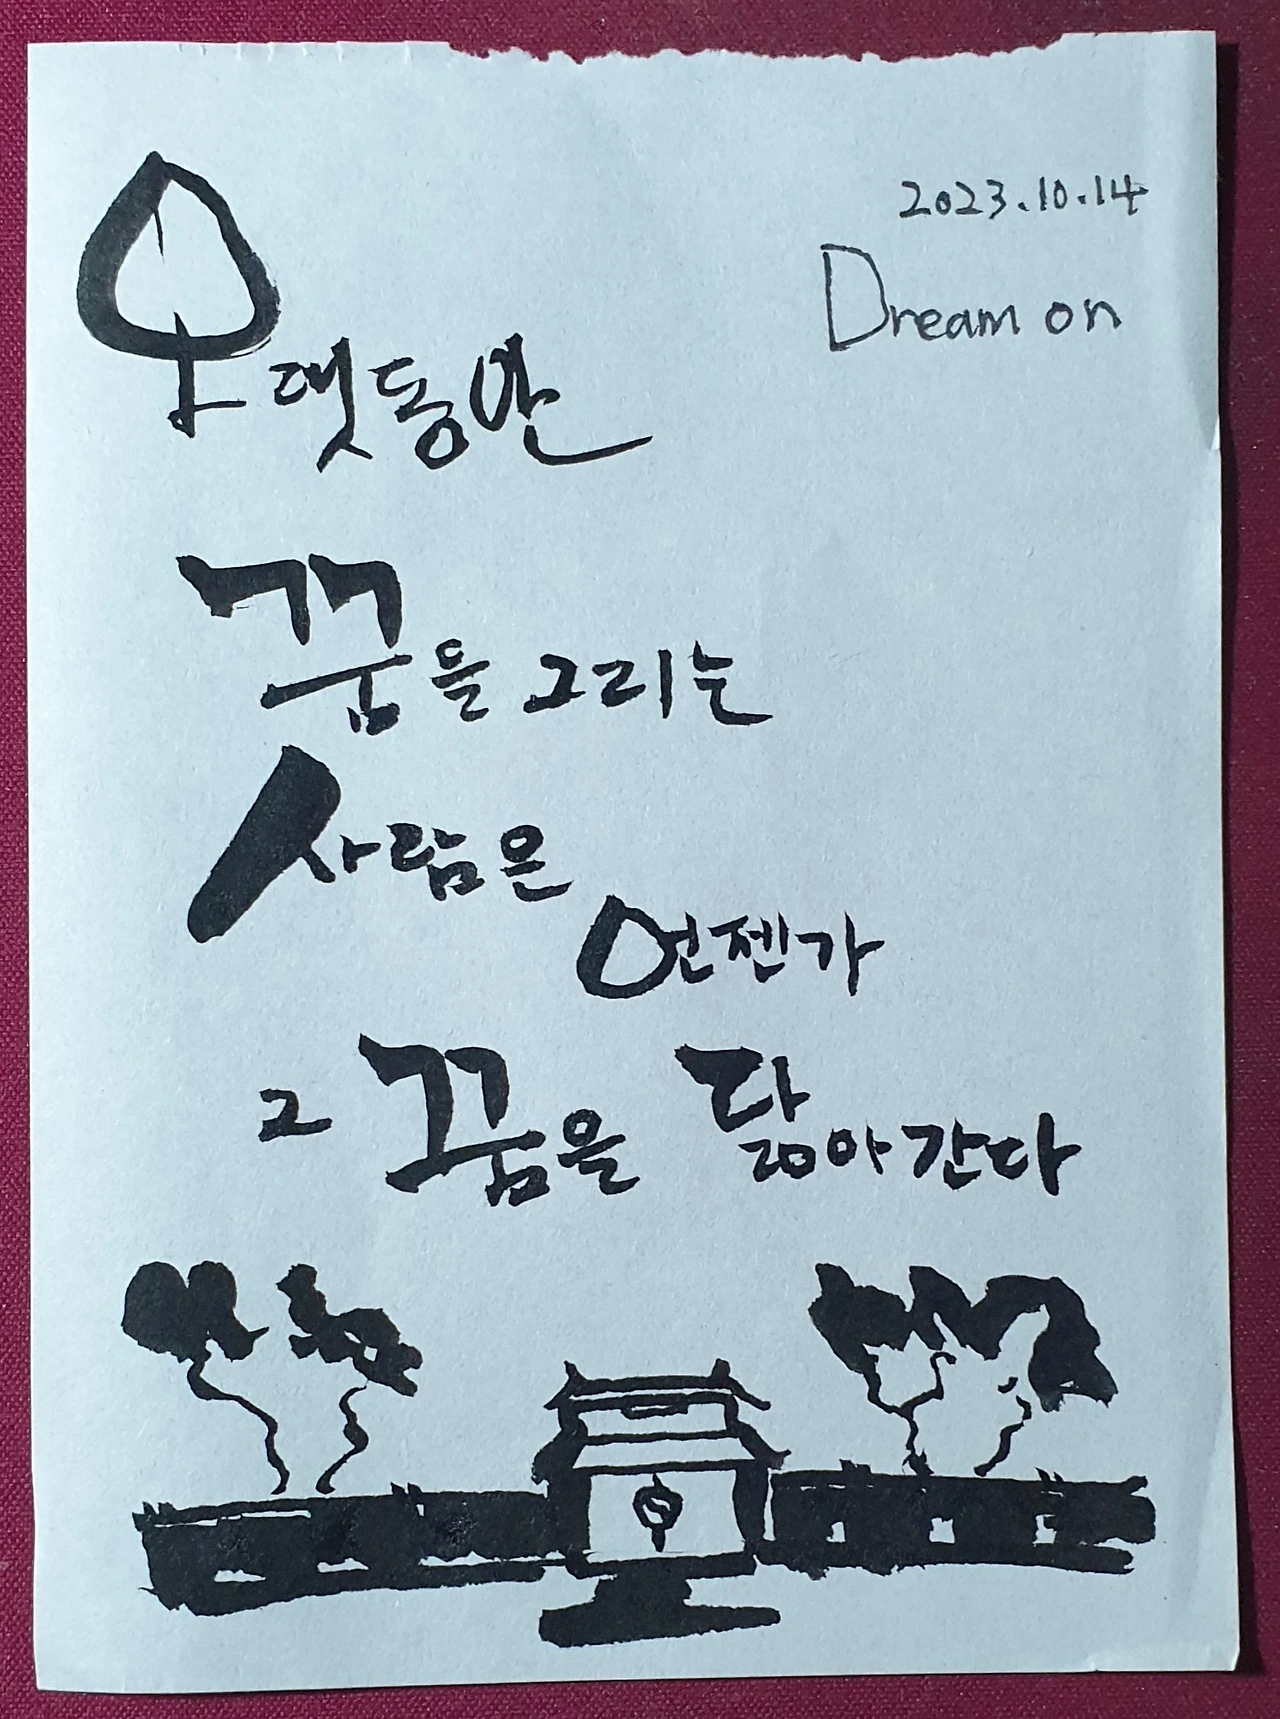 2023.10.14
Dream on
오랫동안
꿈을 그리는
사람은
언젠가
그 꿈을 닮아간다